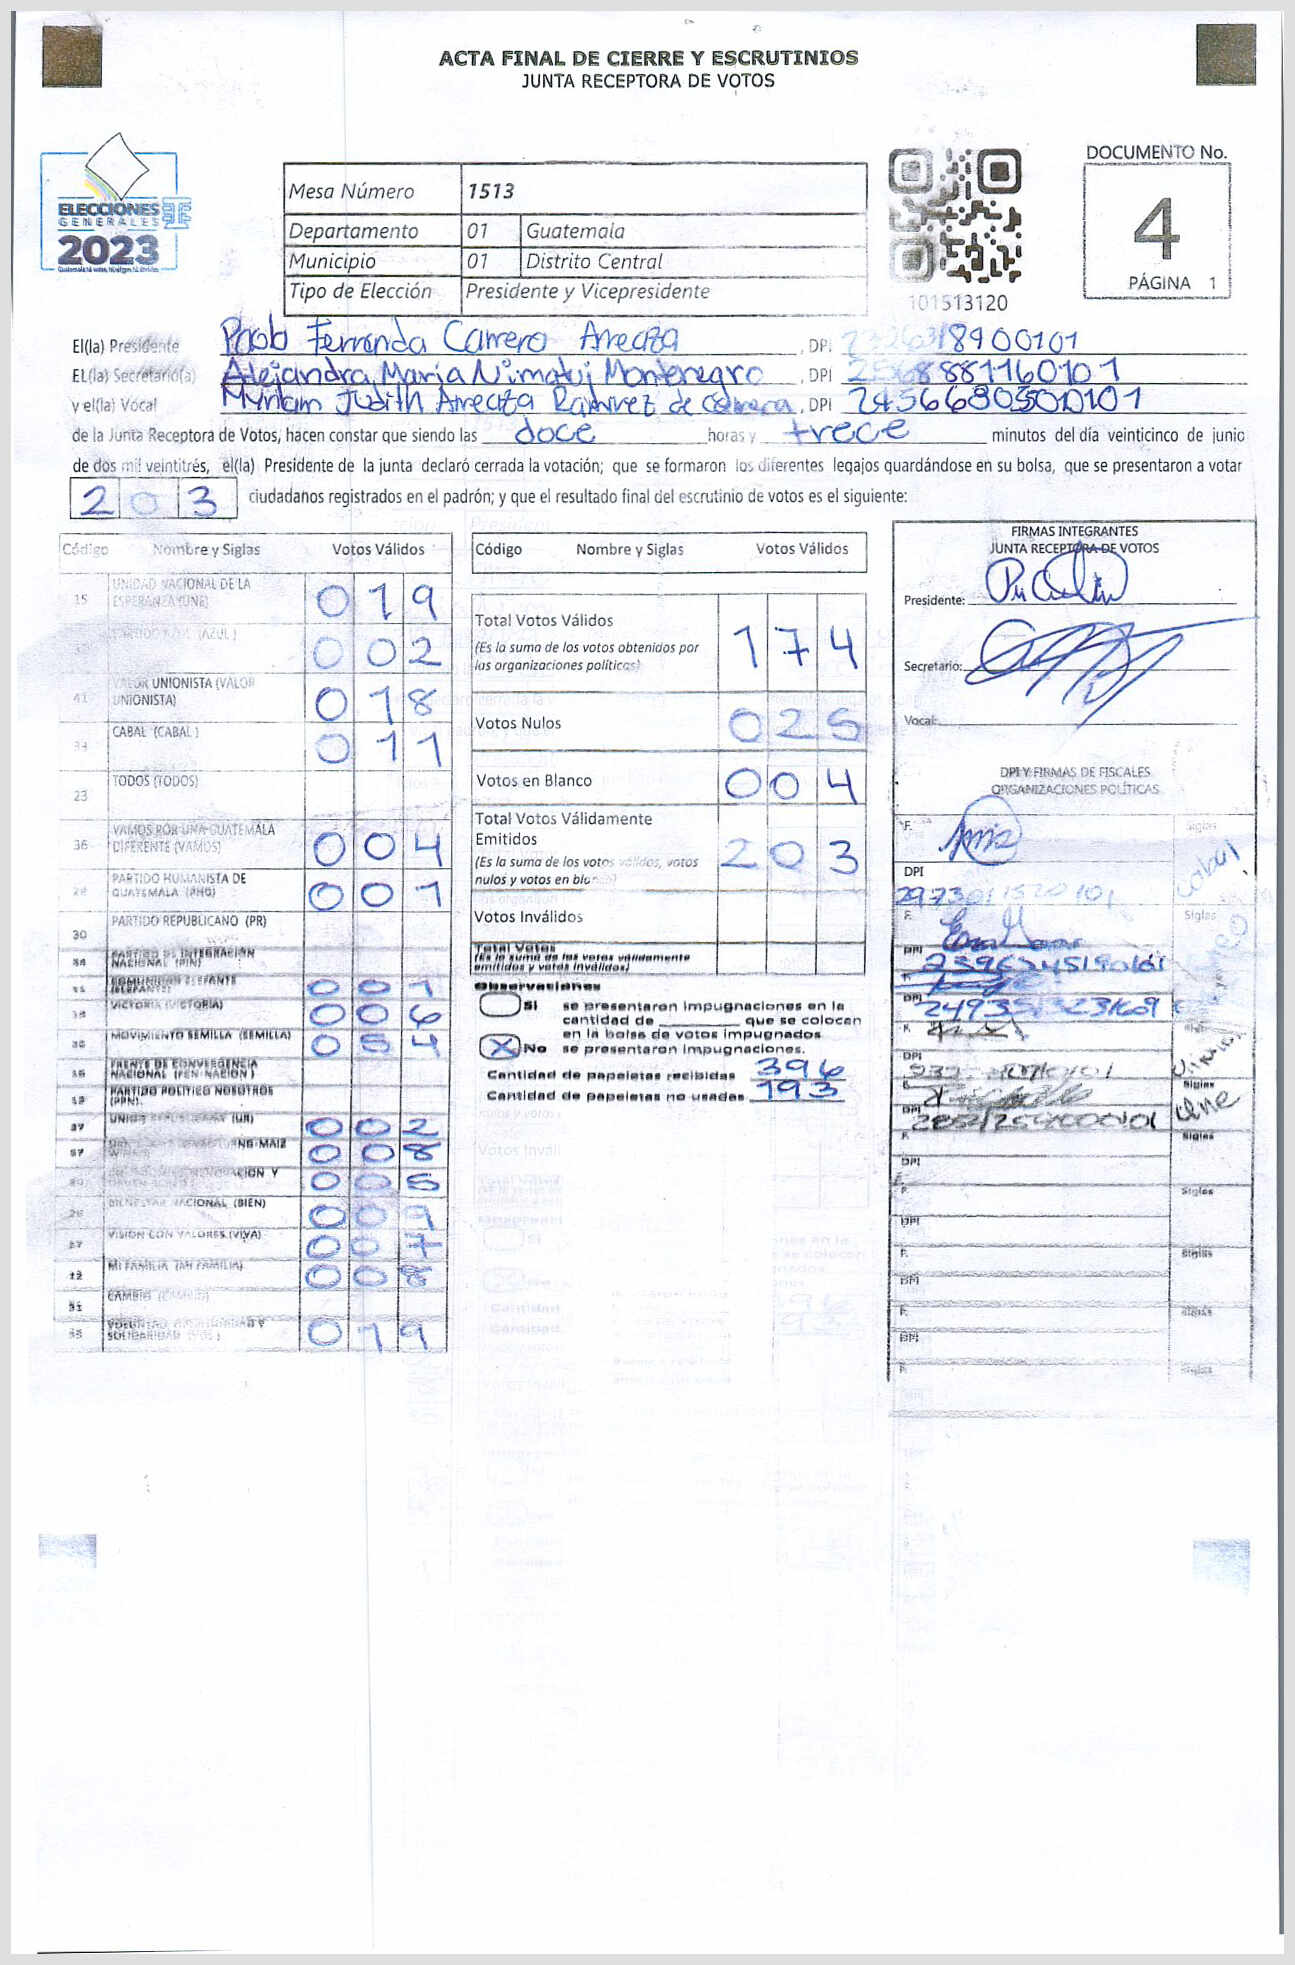 ACTA FINAL DE CIERRE Y ESCRUTINIOS
JUNTA RECEPTORA DE VOTOS
ELECCIONES
GENERALES
2023
Mesa Número 1513
Departamento 01 Guatemala
Municipio 01 Distrito Central
Tipo de Elección Presidente y Vicepresidente
101513120
DOCUMENTO No.
4
PÁGINA 1
El(la) Presidente Fernanda Carrera Arreaza, DPI
EL(la) Secretario(a) Alejandra María Nimatuj Montenegro, DPI
y el(la) Vocal Myriam Judith Arreaza Ramirez de, DPI
de la Junta Receptora de Votos, hacen constar que siendo las doce horas y trece minutos del día veinticinco de junio
de dos mil veintitrés, el(la) Presidente de la junta declaró cerrada la votación; que se formaron los diferentes legajos quardándose en su bolsa, que se presentaron a votar
203 ciudadanos registrados en el padrón; y que el resultado final del escrutinio de votos es el siguiente:
Código Nombre y Siglas Votos Válidos
15 UNIDAD NACIONAL DE LA ESPERANZA (UNE) 019
(AZUL) 002
41 VALOR UNIONISTA (VALOR UNIONISTA) 018
CABAL (CABAL) 011
23 TODOS (TODOS)
36 VAMOS POR UNA GUATEMALA DIFERENTE (VAMOS) 004
PARTIDO HUMANISTA DE GUATEMALA (PHG) 001
30 PARTIDO REPUBLICANO (PR)
PARTIDO DE INTEGRACIÓN NACIONAL (PIN)
COMUNIDAD ELEFANTE (ELEFANTE) 001
VICTORIA (VICTORIA) 006
MOVIMIENTO SEMILLA (SEMILLA) 054
FRENTE DE CONVERGENCIA NACIONAL (FCN NACION)
PARTIDO POLITICO NOSOTROS (PPN)
(UR) 002
MAIZ 008
Y 005
BIENESTAR NACIONAL (BIEN) 009
VISION CON VALORES (VIVA) 007
12 MI FAMILIA (MI FAMILIA) 008
CAMBIO (CAMBIO)
VOLUNTAD, OPORTUNIDAD Y SOLIDARIDAD (VOS) 019
Código Nombre y Siglas Votos Válidos
Total Votos Válidos 174
(Es la suma de los votos obtenidos por
las organizaciones políticas)
Votos Nulos 025
Votos en Blanco 004
Total Votos Válidamente
Emitidos 203
(Es la suma de los votos válidos, votos
nulos y votos en blanco)
Votos Inválidos
Total Votos
(Es la suma de los votos válidamente
emitidos y votos inválidos)
Observaciones
Si se presentaron impugnaciones en la
cantidad de ________ que se colocan
en la bolsa de votos impugnados
X No se presentaron impugnaciones.
Cantidad de papeletas recibidas 396
Cantidad de papeletas no usadas 193
FIRMAS INTEGRANTES
JUNTA RECEPTORA DE VOTOS
Presidente:
Secretario:
Vocal:
DPI Y FIRMAS DE FISCALES
ORGANIZACIONES POLÍTICAS
F. Siglas
DPI
F. Siglas
DPI
DPI
F.
DPI
Siglas
DPI
une
F. Siglas
DPI
F. Siglas
DPI
F. Siglas
DPI
F. Siglas
DPI
F. Siglas